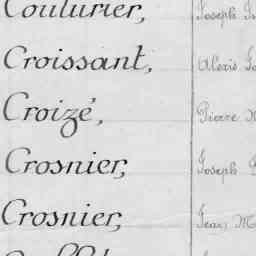 Couturier, Joseph
Croissant, Alexis
Croizé, Pierre
Crosnier, Joseph
Crosnier, Jean M